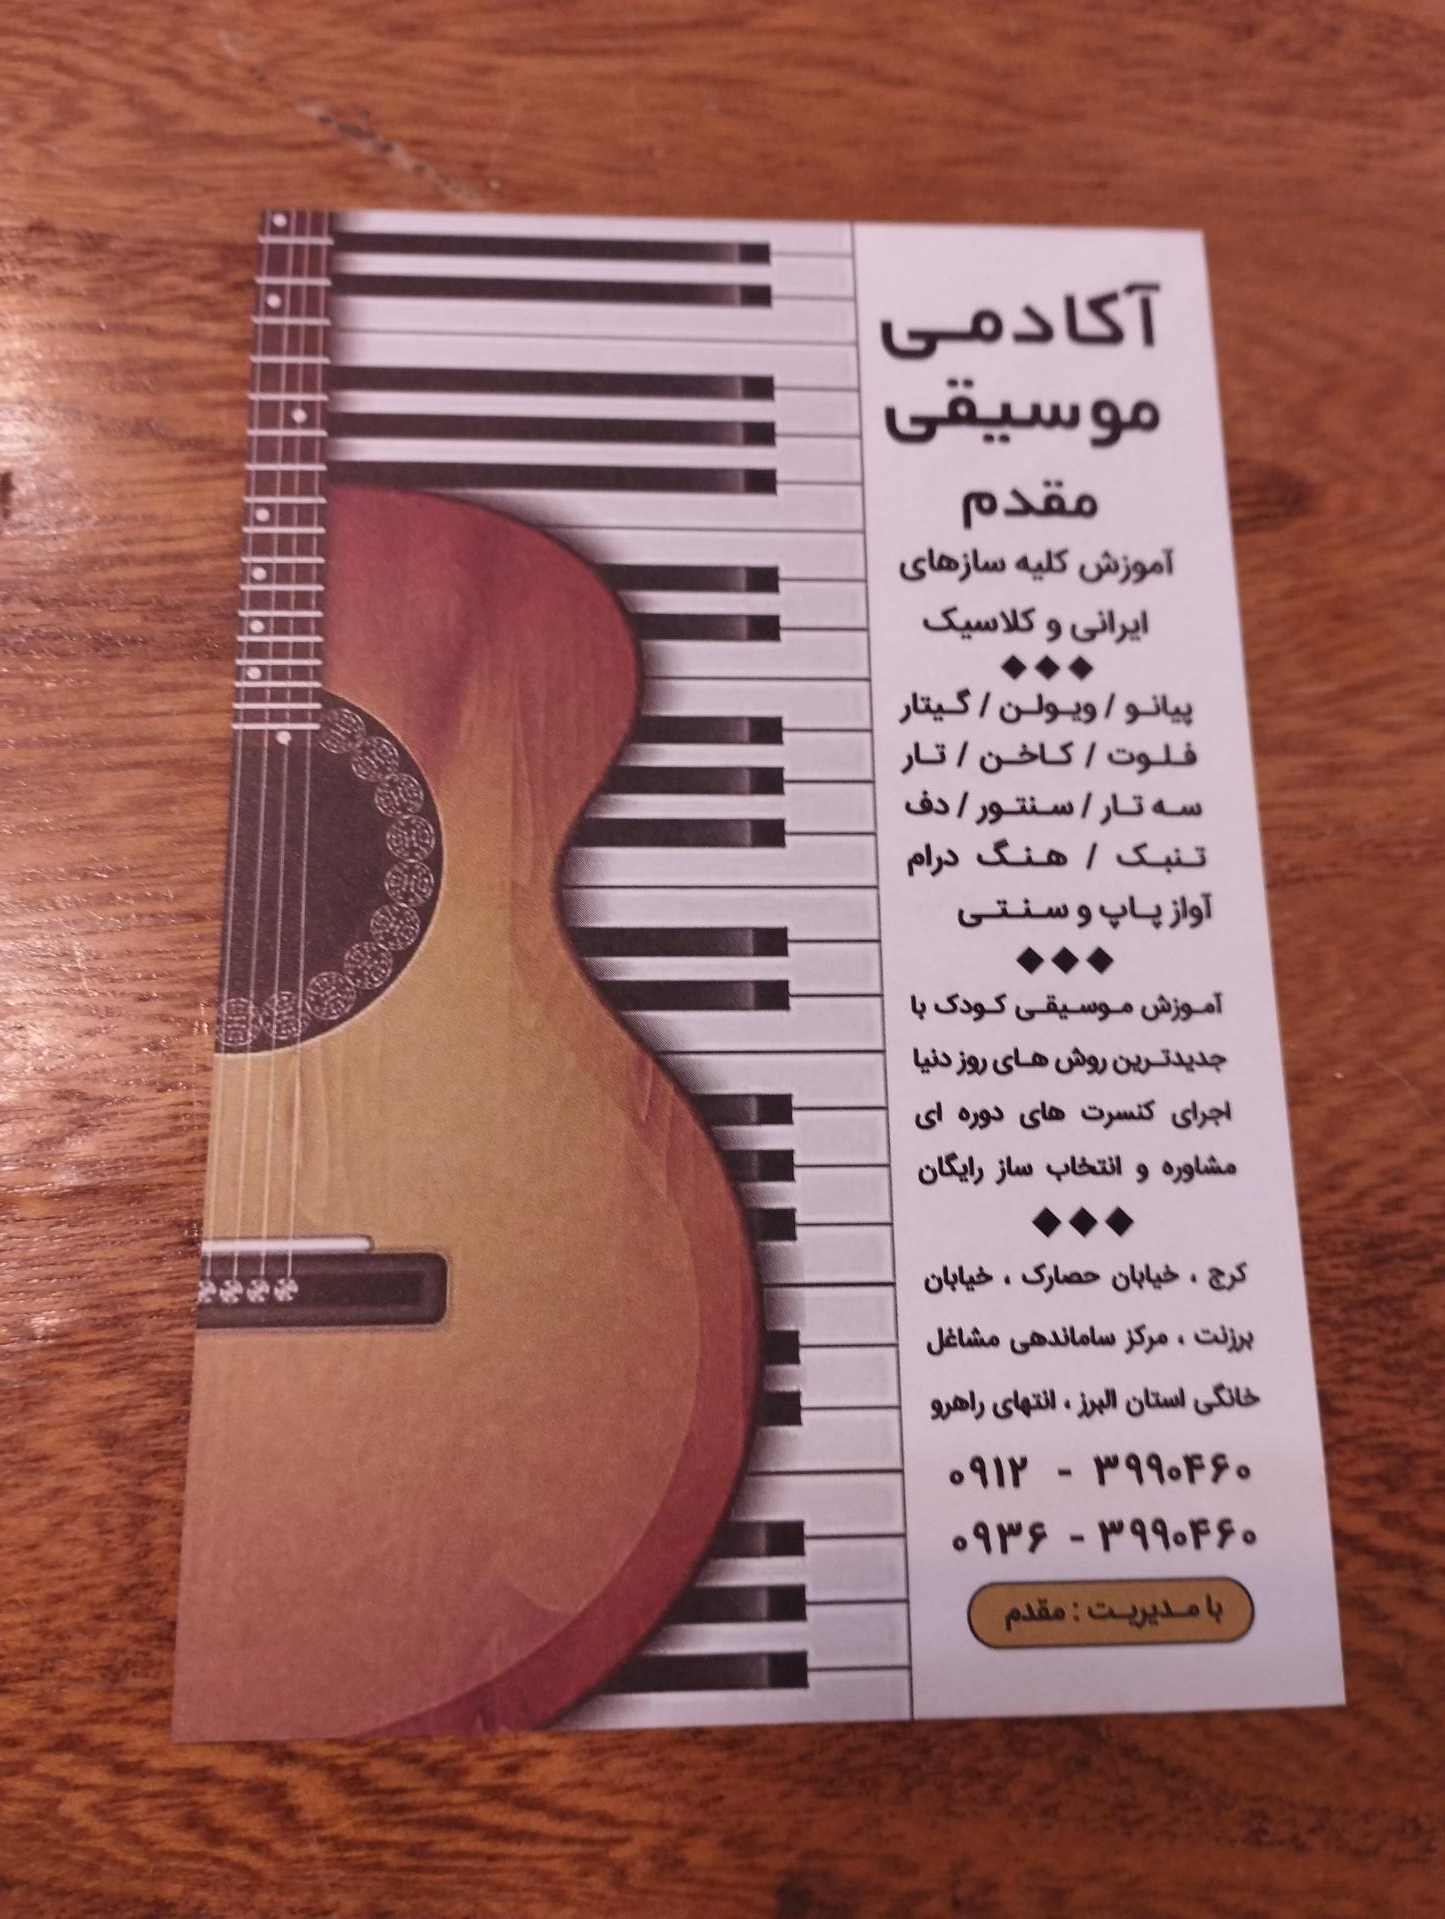 آکادمی
موسیقی
مقدم
آموزش کلیه سازهای
ایرانی و کلاسیک
پیانو / ویولن / گیتار
فلوت / کاخن / تار
سه تار / سنتور / دف
تنبک / هنگ درام
آواز پاپ و سنتی
آموزش موسیقی کودک با
جدیدترین روش های روز دنیا
اجرای کنسرت های دوره ای
مشاوره و انتخاب ساز رایگان
کرج ، خیابان حصارک ، خیابان
برزنت ، مرکز ساماندهی مشاغل
خانگی استان البرز ، انتهای راهرو
۰۹۱۲ - ۳۹۹۰۴۶۰
۰۹۳۶ - ۳۹۹۰۴۶۰
با مدیریت : مقدم